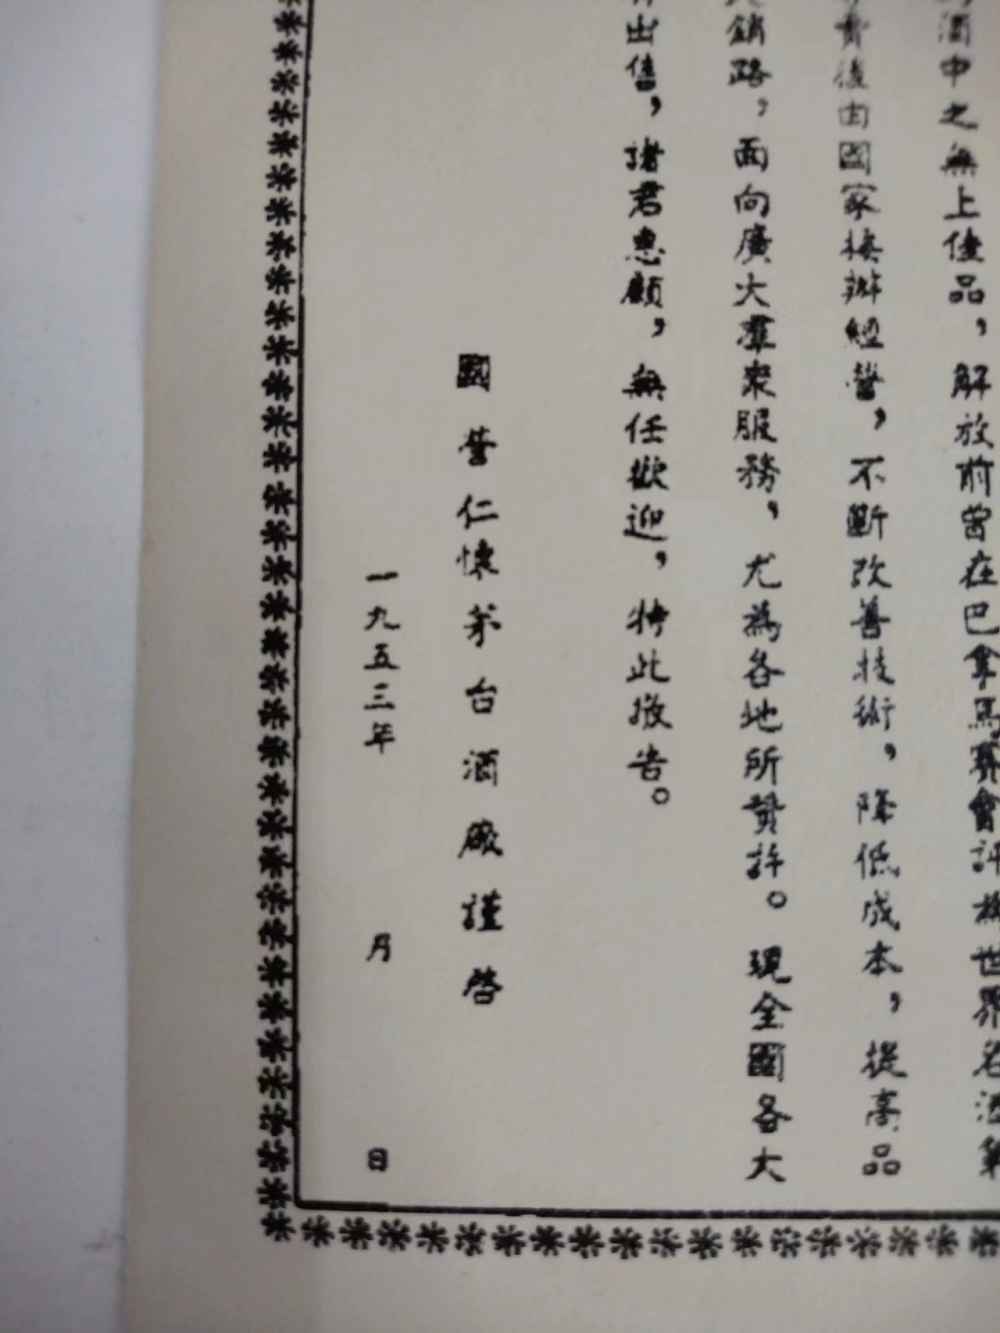 酒中之無上佳品，解放前曾在巴拿馬賽會評極世界名酒第
後由國家接辦經營，不斷改善技術，降低成本，提高品
銷路，面向廣大羣衆服務，尤為各地所贊許。現全國各大
出售，諸君惠顧，無任歡迎，特此敬告。
國營仁懷茅台酒廠謹啓
一九五三年 月 日